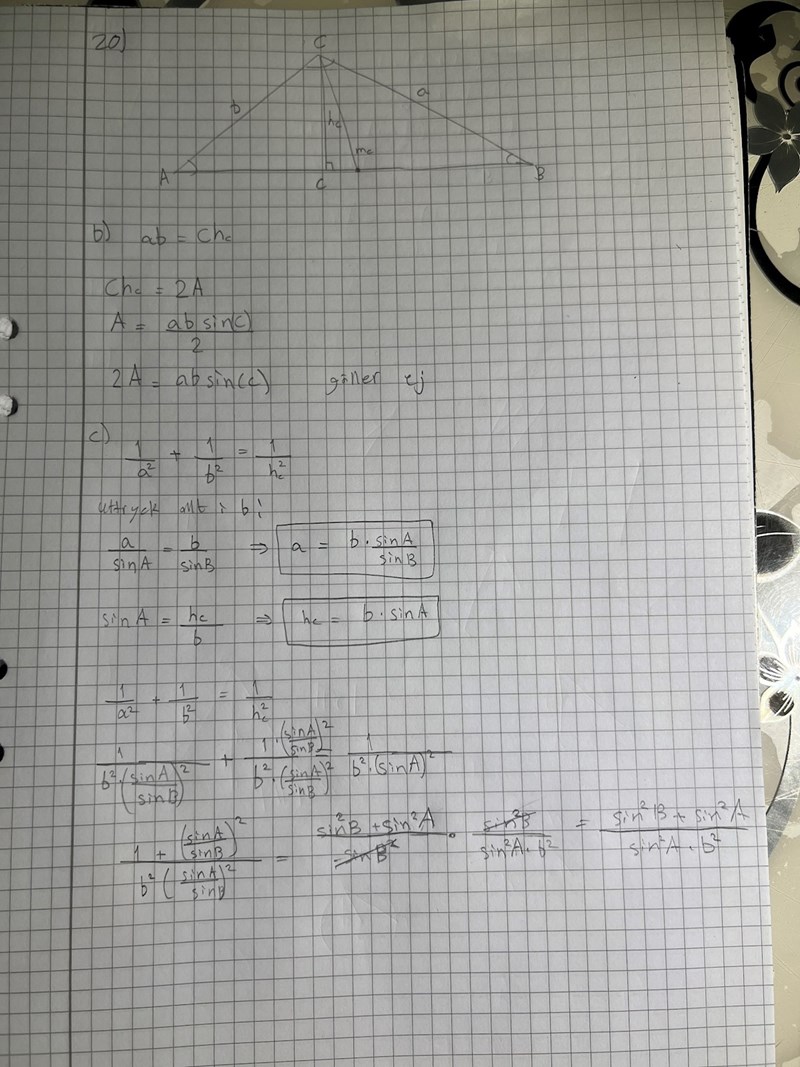 20)
C
b
a
hc
mc
A
C
B
b) ab = Chc
Chc = 2A
A = ab sin(c) / 2
2A = ab sin(c) gäller ej
c)
1/a² + 1/b² = 1/hc²
uttryck allt i b!
a/sinA = b/sinB ⇒ a = b · sinA/sinB
sinA = hc/b ⇒ hc = b · sinA
1/a² + 1/b² = 1/hc²
1/(b² · (sinA/sinB)²) + (1 · (sinA/sinB)²)/(b² · (sinA/sinB)²) 1/(b² · (sinA)²)
(1 + (sinA/sinB)²)/(b² (sinA/sinB)²) = (sin²B + sin²A)/sinB² · sin²B/(sin²A · b²) = (sin²B + sin²A)/(sin²A · b²)